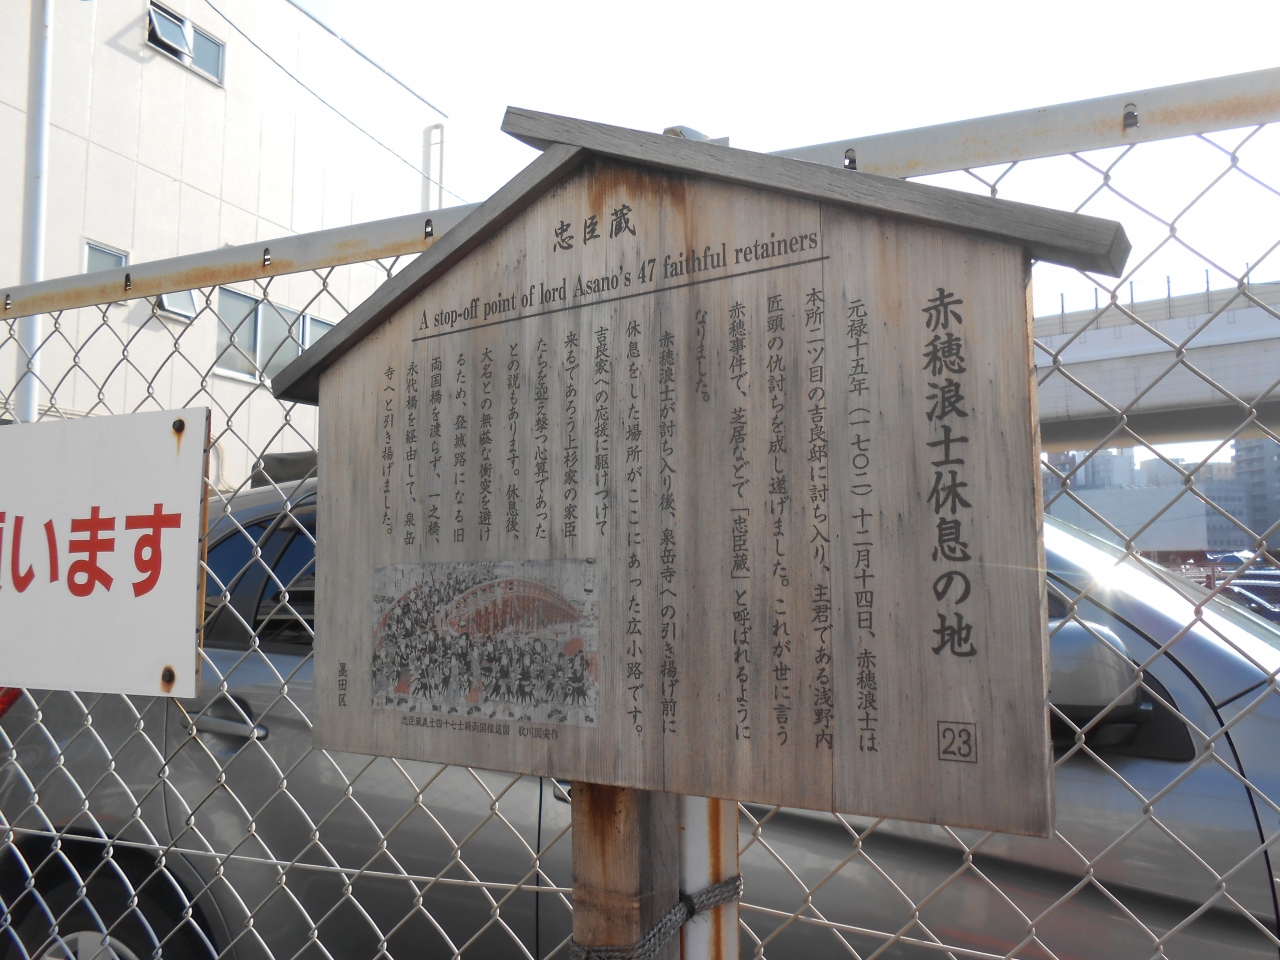 忠臣蔵
A stop-off point of lord Asano's 47 faithful retainers
赤穂浪士休息の地
23
元禄十五年（一七〇二）十二月十四日、赤穂浪士は
本所二ツ目の吉良邸に討ち入り、主君である浅野内
匠頭の仇討ちを成し遂げました。これが世に言う
赤穂事件で、芝居などで「忠臣蔵」と呼ばれるように
なりました。
赤穂浪士が討ち入り後、泉岳寺への引き揚げ前に
休息をした場所がここにあった広小路です。
吉良家への応援に駆けつけて
来るであろう上杉家の家臣
たちを迎え撃つ心算であった
との説もあります。休息後、
大名との無益な衝突を避け
るため、登城路になる旧
両国橋を渡らず、一之橋、
永代橋を経由して、泉岳
寺へと引き揚げました。
忠臣蔵義士四十七士両国橋退図 歌川国安作
墨田区
います